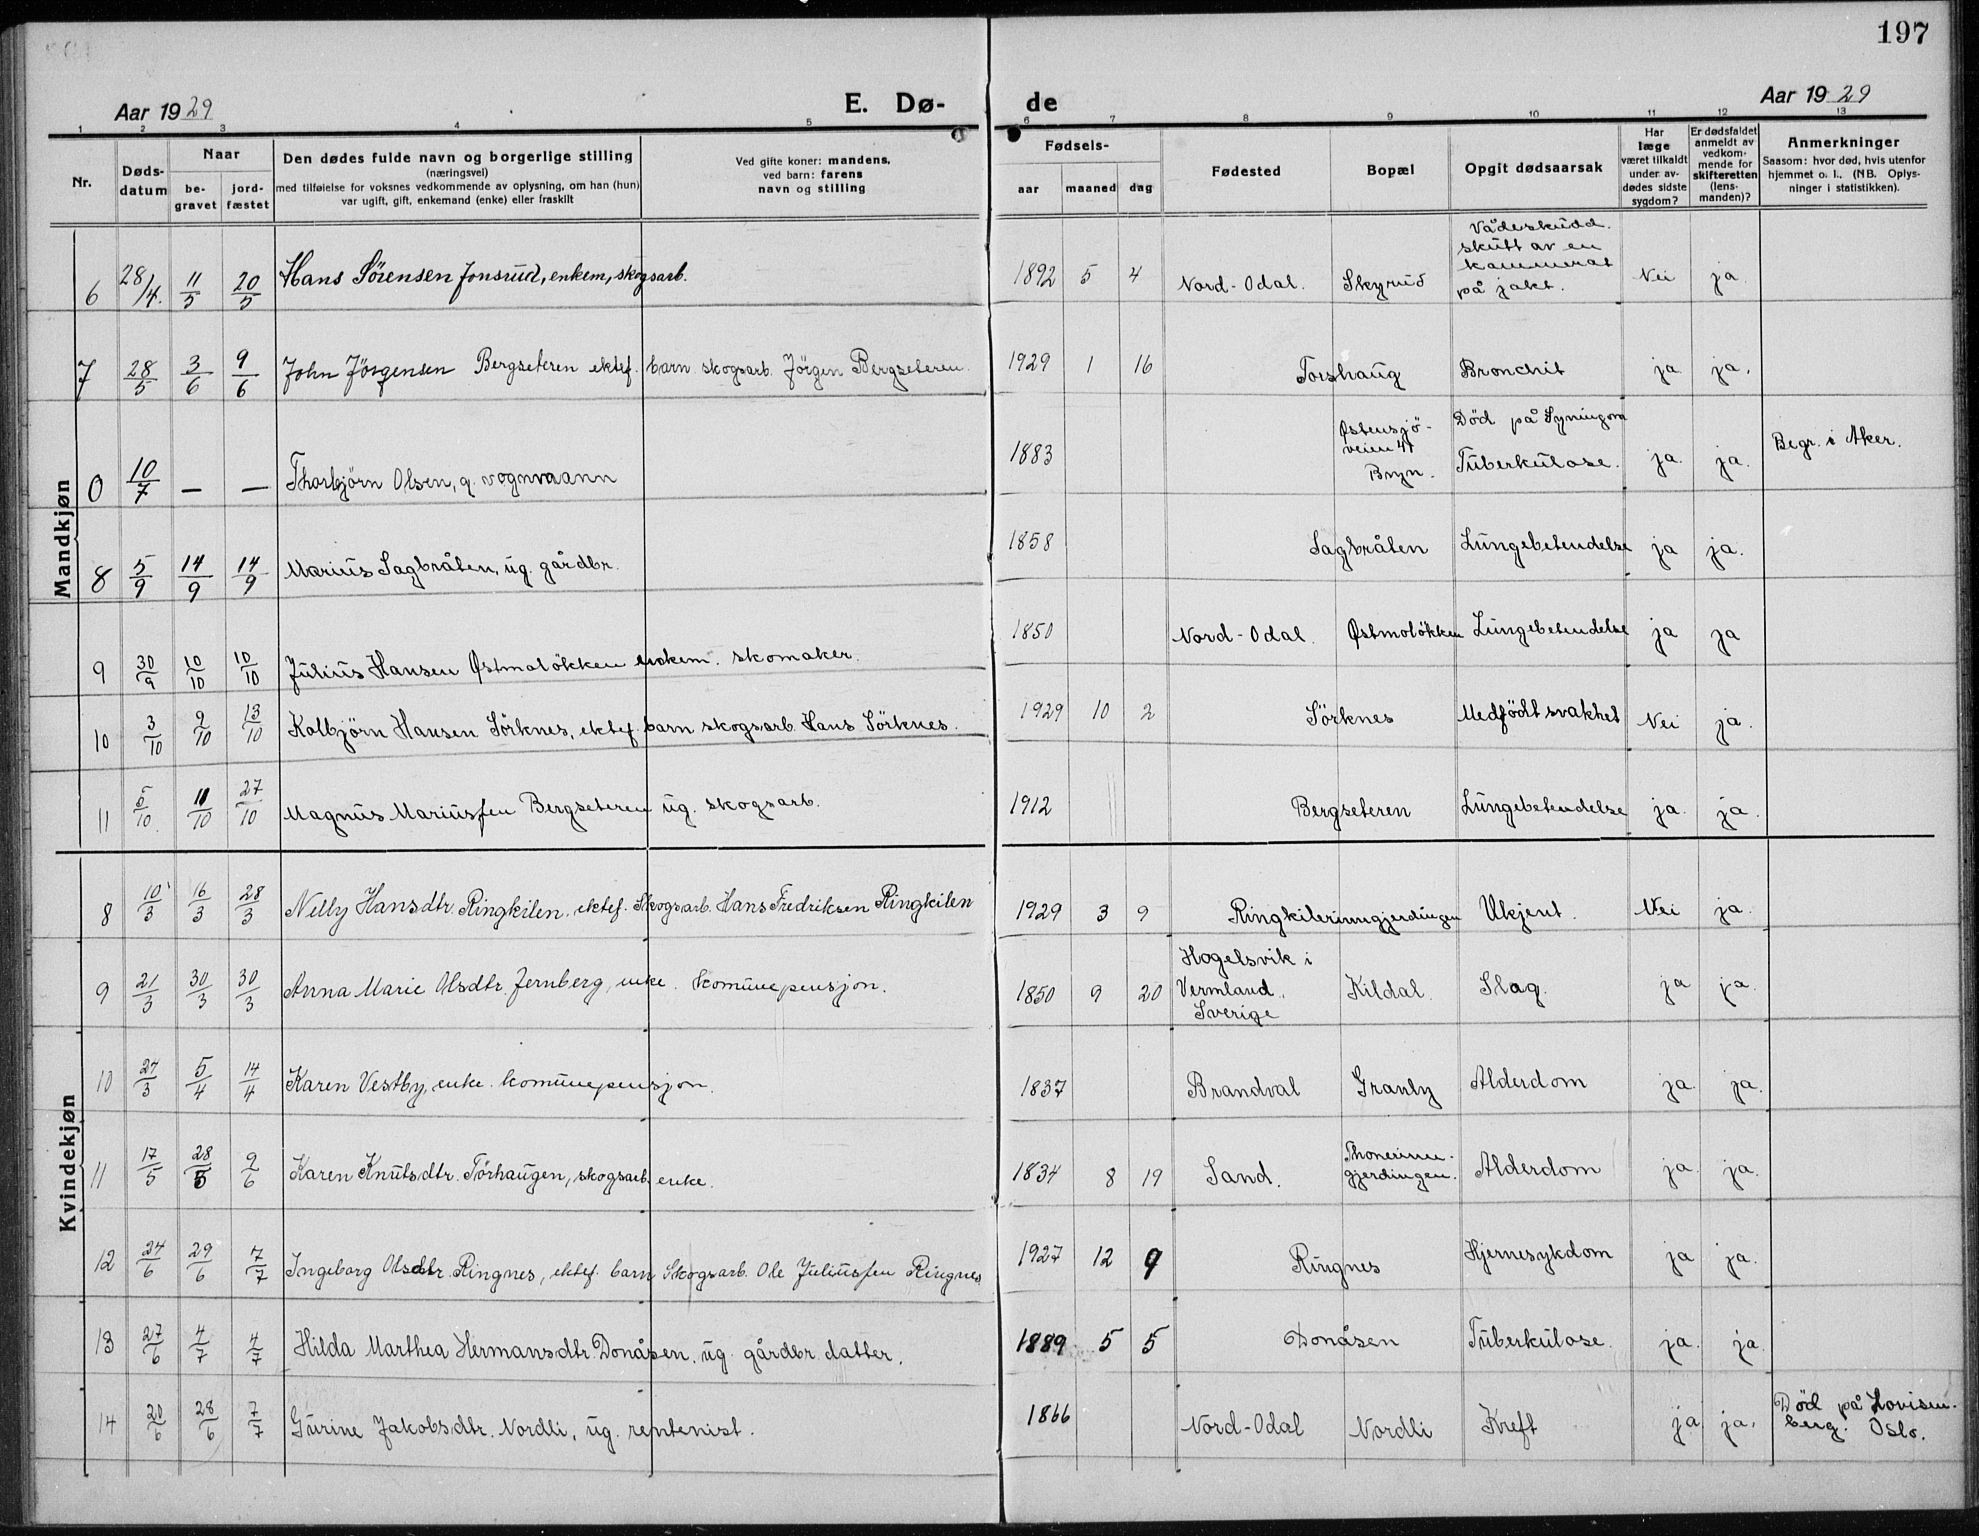 197
Aar 1929 E. Dø- de Aar 1929
1 2 3 4 5 6 7 8 9 10 11 12 13
Nr. Døds-datum Naar be-gravet jord-fæstet Den dødes fulde navn og borgerlige stilling (næringsvei) med tilføielse for voksnes vedkommende av oplysning, om han (hun) var ugift, gift, enkemand (enke) eller fraskilt Ved gifte koner: mandens, ved barn: farens navn og stilling Fødsels- aar maaned dag Fødested Bopæl Opgit dødsaarsak Har læge været tilkaldt under av-dødes sidste sygdom? Er dødsfaldet anmeldt av vedkom-mende for skifteretten (lens-manden)? Anmerkninger Saasom: hvor død, hvis utenfor hjemmet o. l., (NB. Oplys-ninger i statistikken).
Mandkjøn
6 28/4. 11/5 20/5 Hans Sörensen Jonsrud, enkem, skogsarb. 1892 5 4 Nord-Odal. Skyrud Vådeskudd. skutt av en kammerat på jakt. Nei ja
7 28/5 3/6 9/6 John Jörgensen Bergseteren ektef. barn skogsarb. Jörgen Bergseteren. 1929 1 16 Torshaug Bronchit ja ja.
0 10/7 — — Thorbjörn Olsen, g. vognmann 1883 Østensjö-veien 41 Bryn. Död på Tuberkulose. ja. ja. Begr. i Aker.
8 5/9 14/9 14/9 Marius Sagbråten, ug. gårdbr. 1858 Sagbråten Lungebetendelse ja ja.
9 30/9 10/10 10/10 Julius Hansen Østmolökken enkem. skomaker. 1850 Nord-Odal. Østmolökken Lungebetendelse ja ja
10 3/10 9/10 13/10 Kolbjörn Hansen Sörknes, ektef. barn skogsarb. Hans Sörknes. 1929 10 2 Sörknes Medfödt svakhet Nei ja.
11 5/10. 11/10 27/10 Magnus Mariussen Bergseteren ug. skogsarb. 1912 Bergseteren Lungebetendelse ja. ja.
Kvindekjøn
8 10/3 16/3 28/3 Nelly Hansdtr. Ringkilen. ektef. Skogsarb. Hans Fredriksen Ringkilen 1929 3 9 Ringkilerinngjerdingen Ukjent. Nei ja.
9 21/3 30/3 30/3 Anna Marie Olsdtr. Jernberg, enke. Komunepensjon. 1850 9 20 Hogelsvik i Vermland, Sverige Kildal. Slag. ja ja.
10 24/3 5/4 14/4 Karen Vestby, enke. komunepensjon. 1837 Brandval Granly Alderdom ja. ja.
11 17/5 28/5 9/6 Karen Knutsdtr. Törhaugen, skogsarb. enke. 1834 8 19 Sand. Thonerinn-gjerdingen. Alderdom ja. ja.
12 24/6 29/6 7/7 Ingeborg Olsdtr. Ringnes, ektef. barn Skogsarb. Ole Juliussen Ringnes 1927 12 9 Ringnes Hjernesykdom ja ja.
13 27/6 4/7 4/7 Hilda Marthea Hermansdtr. Donåsen. ug. gårdbr. datter. 1889 5 5 Donåsen Tuberkulose. ja. ja.
14 20/6 28/6 7/7 Gurine Jakobsdtr. Nordli, ug. rentenist. 1866 Nord-Odal Nordli Kreft ja ja. Död på Lovisen-berg. Oslo.